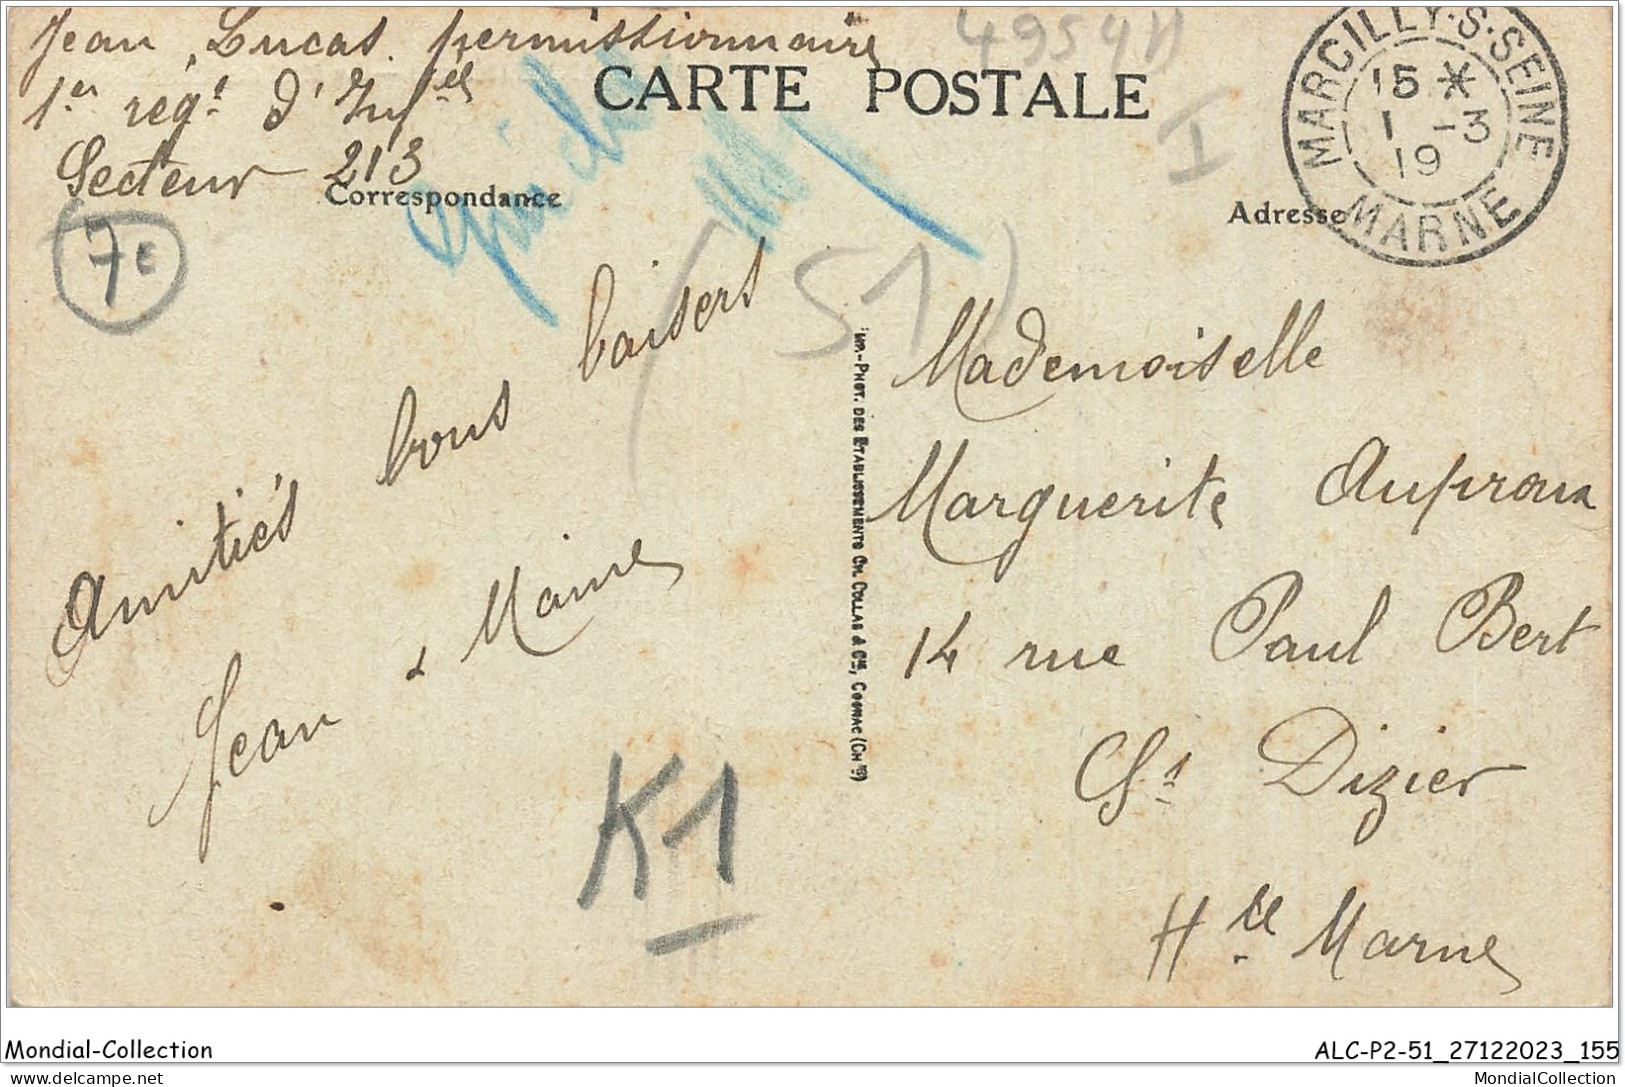 Jean Lucas permissionnaire
1er régt d'Inf
Secteur 213
49594
CARTE POSTALE
I
MARCILLY-S-SEINE
15 *
1 -3
19
MARNE
Correspondance
Adresse
7€
(51)
Amitiés bons baisers
Jean & Maine
IMP.-PHOT. DES ETABLISSEMENTS CH. COLLAS & Cie, COGNAC (CHte)
Mademoiselle
Marguerite Auproux
14 rue Paul Bert
St Dizier
Hte Marne
K1
Mondial-Collection
ALC-P2-51_27122023_155
MondialCollection.net
MondialCollection